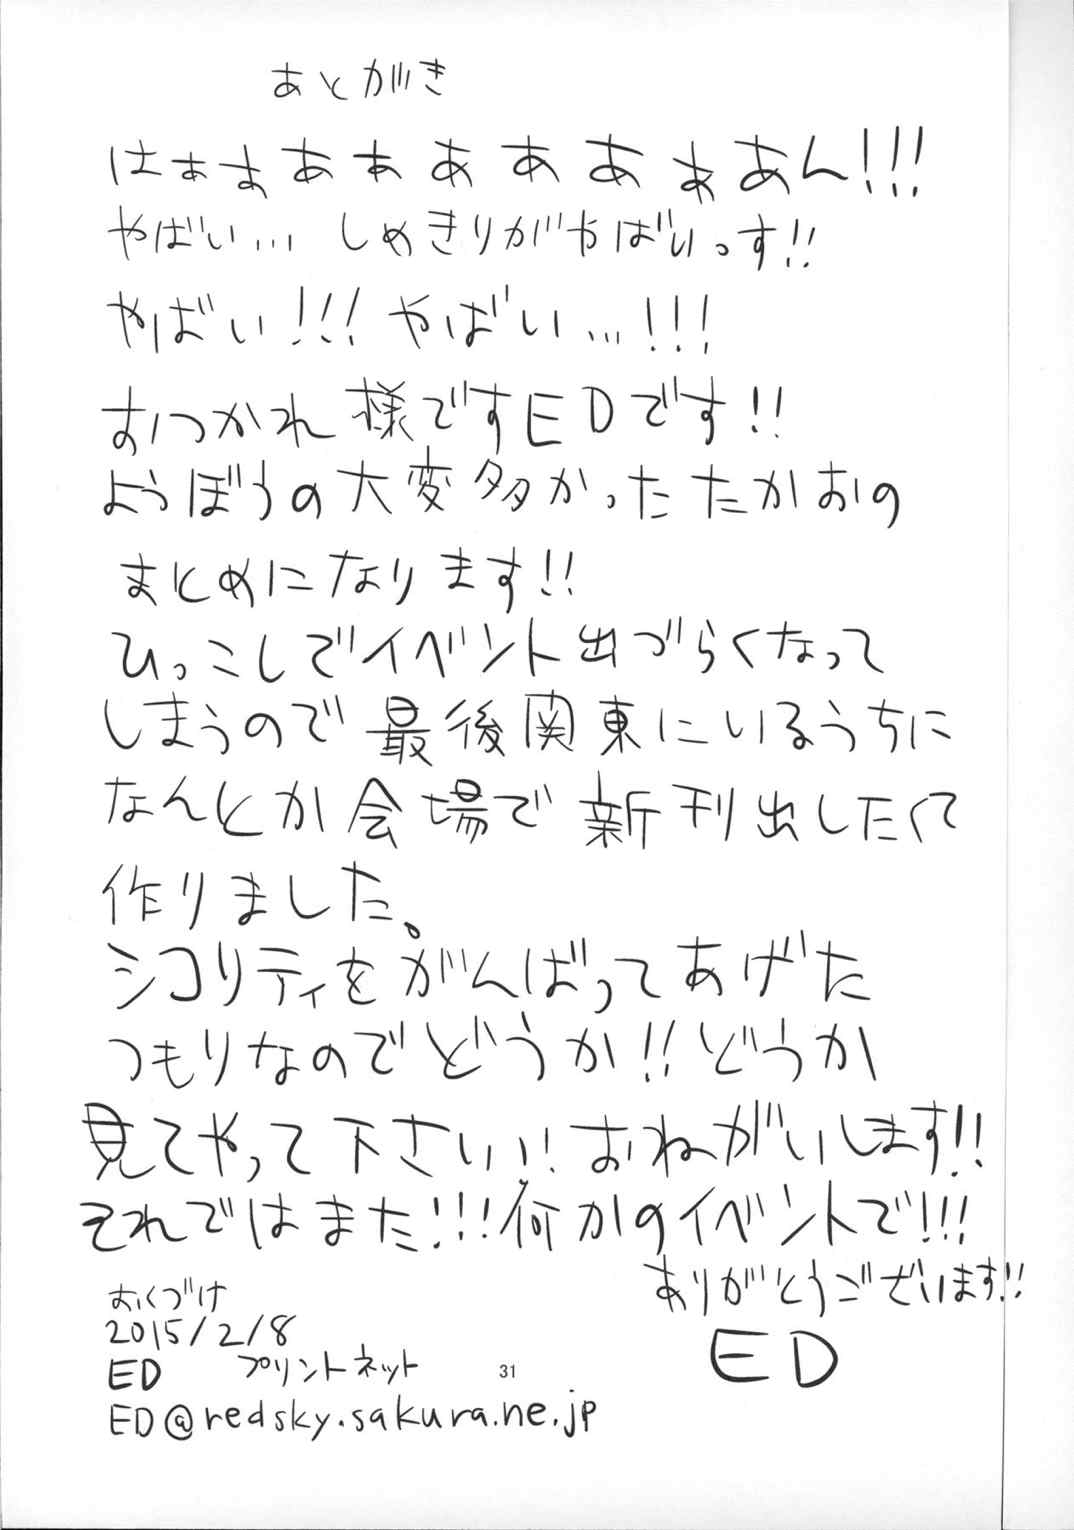 あとがき
はぁぁあぁぁああぁあん!!!
やばい… しめきりがやばいっす!!
やばい!!! やばい…!!!
おつかれ様ですEDです!!
ようぼうの大変多かったたかおの
まとめになります!!
ひっこしでイベント出づらくなって
しまうので最後関東にいるうちに
なんとか会場で新刊出したくて
作りました。
シコリティをがんばってあげた
つもりなのでどうか!! どうか
見てやって下さいい!! おねがいします!!
それではまた!!! 何かのイベントで!!!
ありがとうございます!!
ED
おくづけ
2015/2/8
ED プリントネット
ED@redsky.sakura.ne.jp
31